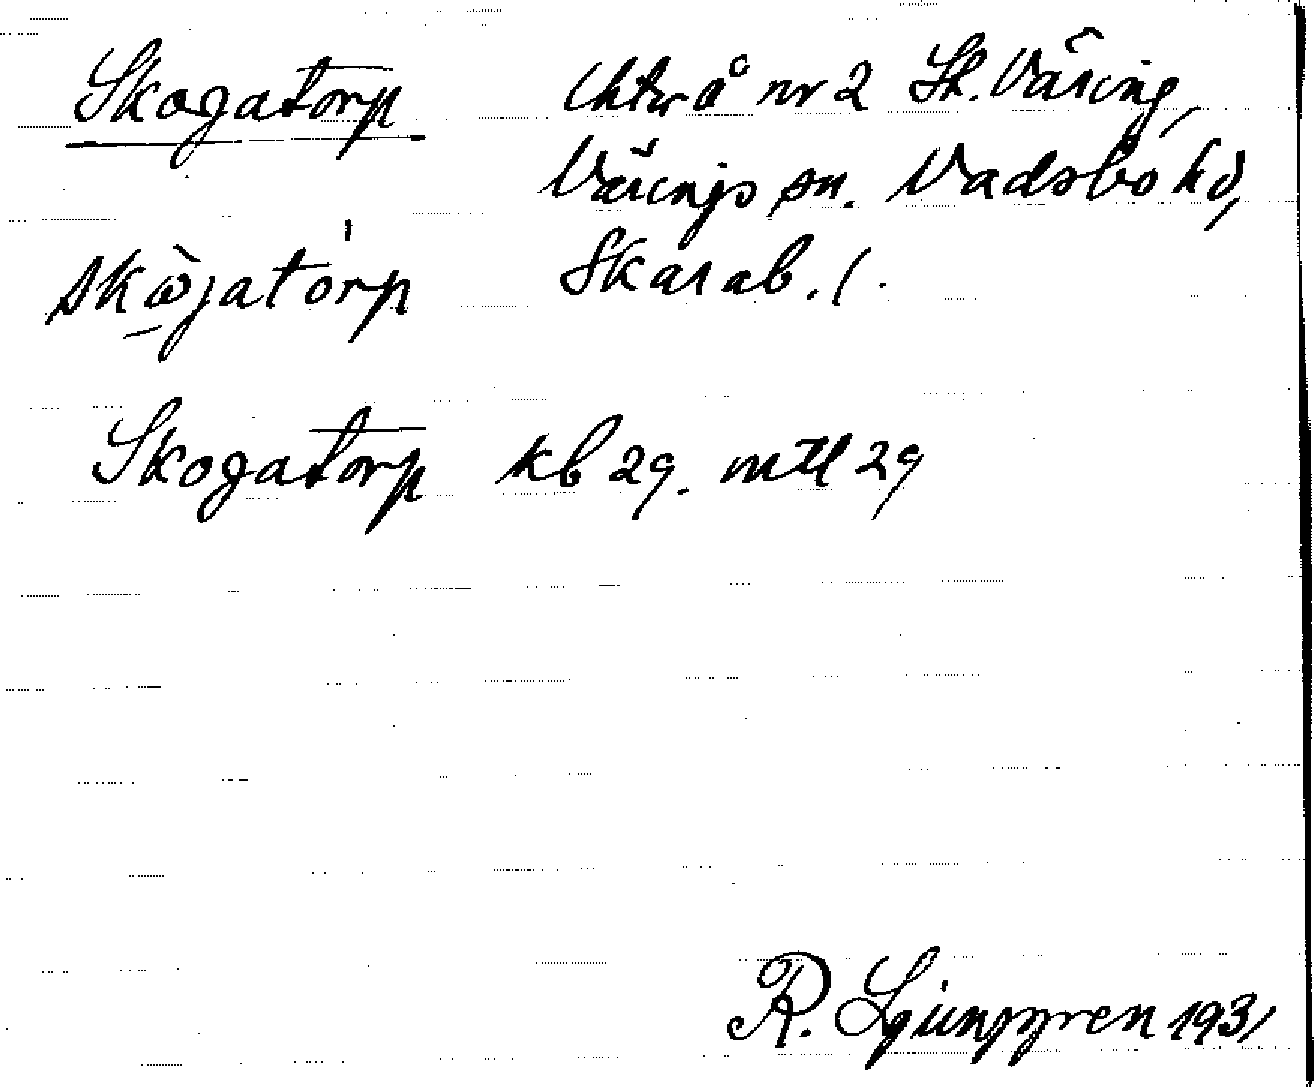 Skogatorp Utw å nr 2 St. Väring,
Värings sn. Vadsbo hd,
skògatórp Skarab. l.
Skogatorp kb 29. mtl 29
R. Ljunggren 1931